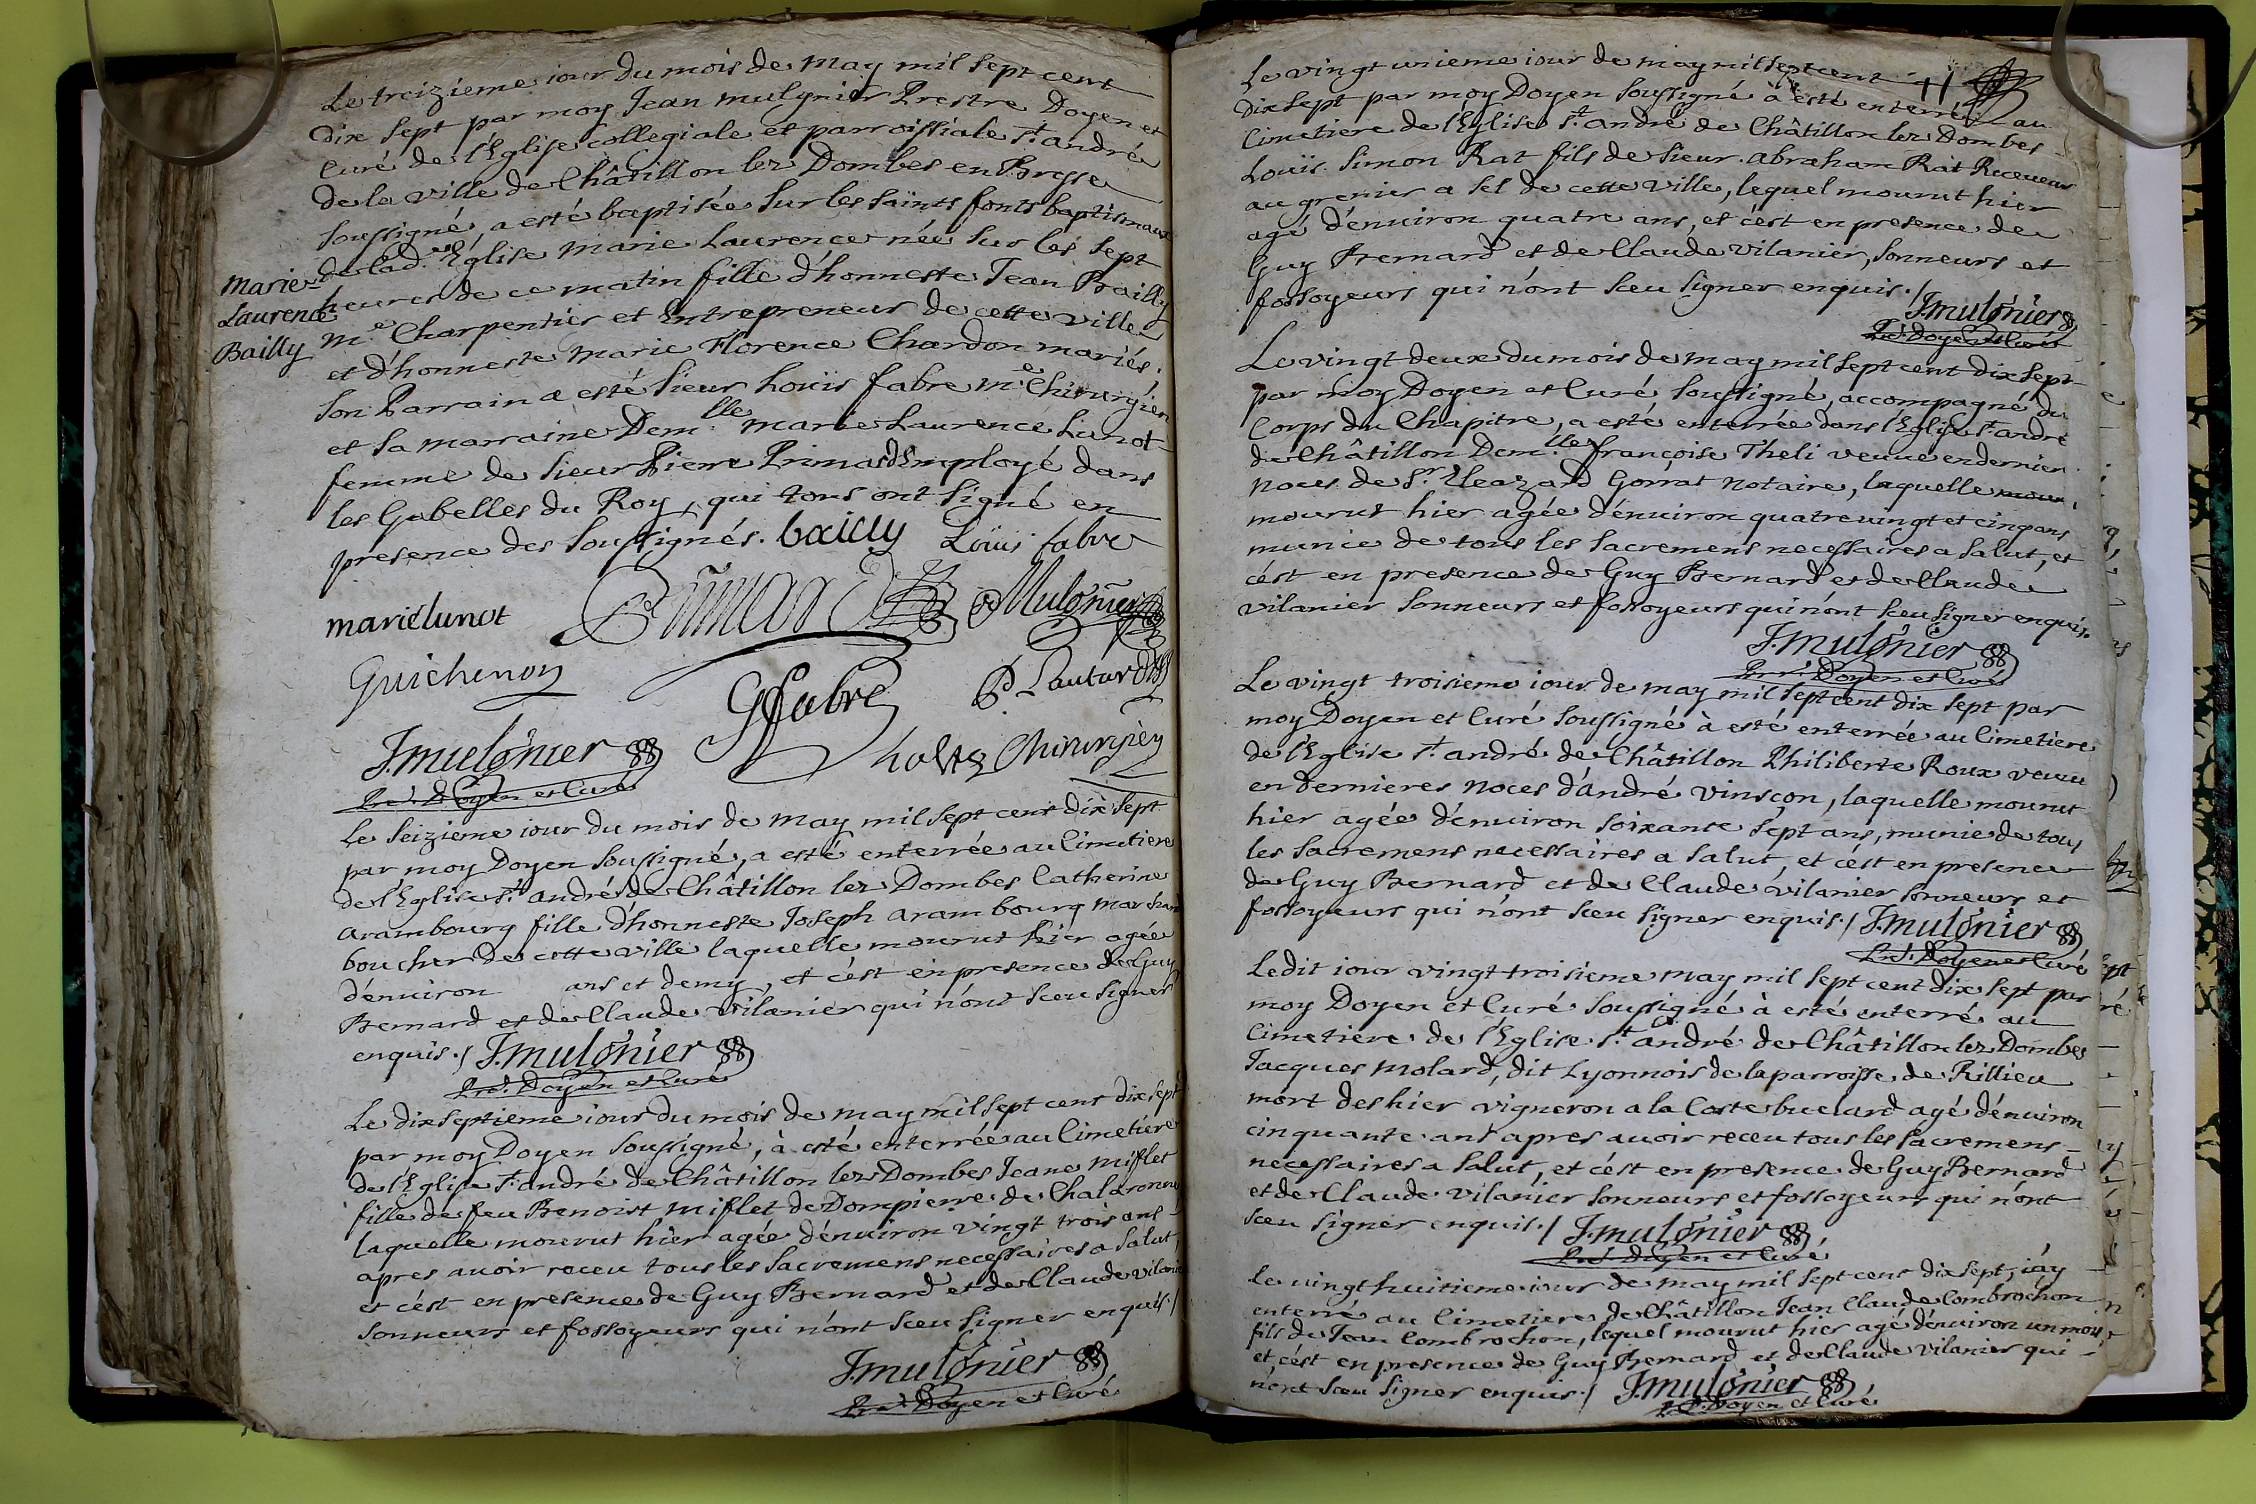 Le treizieme iour du mois de May mil sept cent
Dix sept par moy Jean mulonier Prestre Doyen et
Curé de l'Eglise Collegiale et parroissiale St. andré
de la ville de Châtillon lez Dombes en Bresse
soussigné, a esté baptisée sur les saints fonts baptismaux
de lad. Eglise marie Laurence née sur les sept
heures de ce matin fille d'honneste Jean Bailly
me. Charpentier et Entrepreneur de cette ville
et d'honneste marie Florence Chardon mariés.
son Parrain a esté sieur Loüis fabre me. Chirurgien
et sa marraine Demlle. marie Laurence Lunot
femme de sieur Pierre Primard Employé dans
les Gabelles du Roy, qui tous ont signé en
presence des soussignés. bailly Loüis fabre
marie
Laurence
Bailly
marie lunot Primard Mulonier
Guichenon Gffabre P. Lautard
J. mulonier Chirurgien
Pre. Doyen et Curé
Le seizieme iour du mois de May mil sept cent dix sept
par moy Doyen soussigné, a esté enterrée au Cimetiere
de l'Eglise St. andré de Châtillon lez Dombes Catherine
arambourg fille d'honneste Joseph arambourg marchand
boucher de cette ville laquelle mourut hier agée
d'énuiron ans et demy, et c'ést en presence de Guy
Bernard et de Claude Vilanier qui n'ónt sceu signer
enquis./ J. mulonier
Pre. Doyen et Curé
Le dixseptieme iour du mois de may mil sept cent dix sept
par moy Doyen soussigné, à esté enterrée au Cimetiere
de l'Eglise St. andré de Châtillon lez Dombes Jeane miflet
fille de feu Benoist miflet de Dompierre de Chalaronne
laquelle mourut hier agée d'énuiron vingt trois ans
apres auoir receu tous les sacremens necessaires a salut,
et c'ést en presence de Guy Bernard et de Claude Vilanier
sonneurs et fossoyeurs qui n'ónt sceu signer enquis./
J. mulonier
Pre. Doyen et Curé
Le vingt unieme iour de may mil sept cent 11
dix sept par moy Doyen soussigné à esté enterré au
Cimetiere de l'Eglise St. andré de Châtillon lez Dombes
Loüis Simon Rat fils de sieur abraham Rat Receueur
au grenier a sel de cette ville, lequel mourut hier
agé d'énuiron quatre ans, et c'ést en presence de
Guy Bernard et de Claude Vilanier, sonneurs et
fossoyeurs qui n'ónt sceu signer enquis./
J. mulonier
Pre. Doyen et Curé
Le vingt deux du mois de may mil sept cent dix sept
par moy Doyen et Curé soussigné, accompagné du
Corps du Chapitre, a esté enterrée dans l'Eglise St. andré
de Châtillon Demlle. françoise Theli veuue en dernier
noces de Sr. Eleazard Gorrat notaire, laquelle mour
mourut hier agée d'énuiron quatre vingt et cinq ans
munie de tous les sacremens necessaires a salut, et
c'ést en presence de Guy Bernard et de Claude
Vilanier sonneurs et fossoyeurs qui n'ónt sceu signer enquis.
J. mulonier
Pre. Doyen et Curé
Le vingt troisieme iour de may mil sept cent dix sept par
moy Doyen et Curé soussigné à esté enterrée au Cimetiere
de l'Eglise St. andré de Châtillon Philiberte Roux veuue
en dernieres noces d'ándré vinscon, laquelle mourut
hier agée d'énuiron soixante sept ans, munie de tous
les sacremens necessaires a salut, et c'ést en presence
de Guy Bernard et de Claude Vilanier sonneurs et
fossoyeurs qui n'ónt sceu signer enquis./ J. mulonier
Pre. Doyen et Curé
Ledit iour vingt troisieme may mil sept cent dix sept par
moy Doyen et Curé soussigné à esté enterré au
Cimetiere de l'Eglise St. andré de Châtillon lez Dombes
Jacques molard, dit Lyonnois de la parroisse de Rillieu
mort des hier vigneron a la Coste buelard agé d'énuiron
cinquante ans apres auoir receu tous les sacremens
necessaires a salut, et c'ést en presence de Guy Bernard
et de Claude Vilanier sonneurs et fossoyeurs qui n'ónt
sceu signer enquis./ J. mulonier
Pre. Doyen et Curé
Le vingt huitieme iour de may mil sept cent dix sept, i'ay
enterré au Cimetiere de Châtillon Jean Claude Combrochon
fils de Jean Combrochon, lequel mourut hier agé d'énuiron un mois
et c'ést en presence de Guy Bernard et de Claude Vilanier qui
n'ónt sceu signer enquis./ J. mulonier
Pre. Doyen et Curé